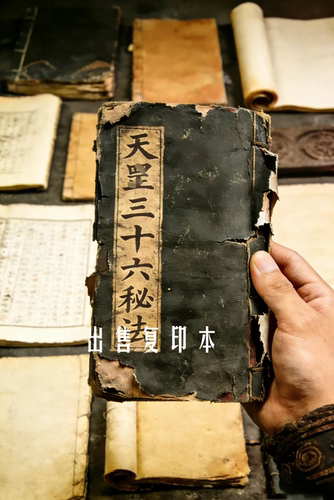 天罡三十六秘法
出售复印本